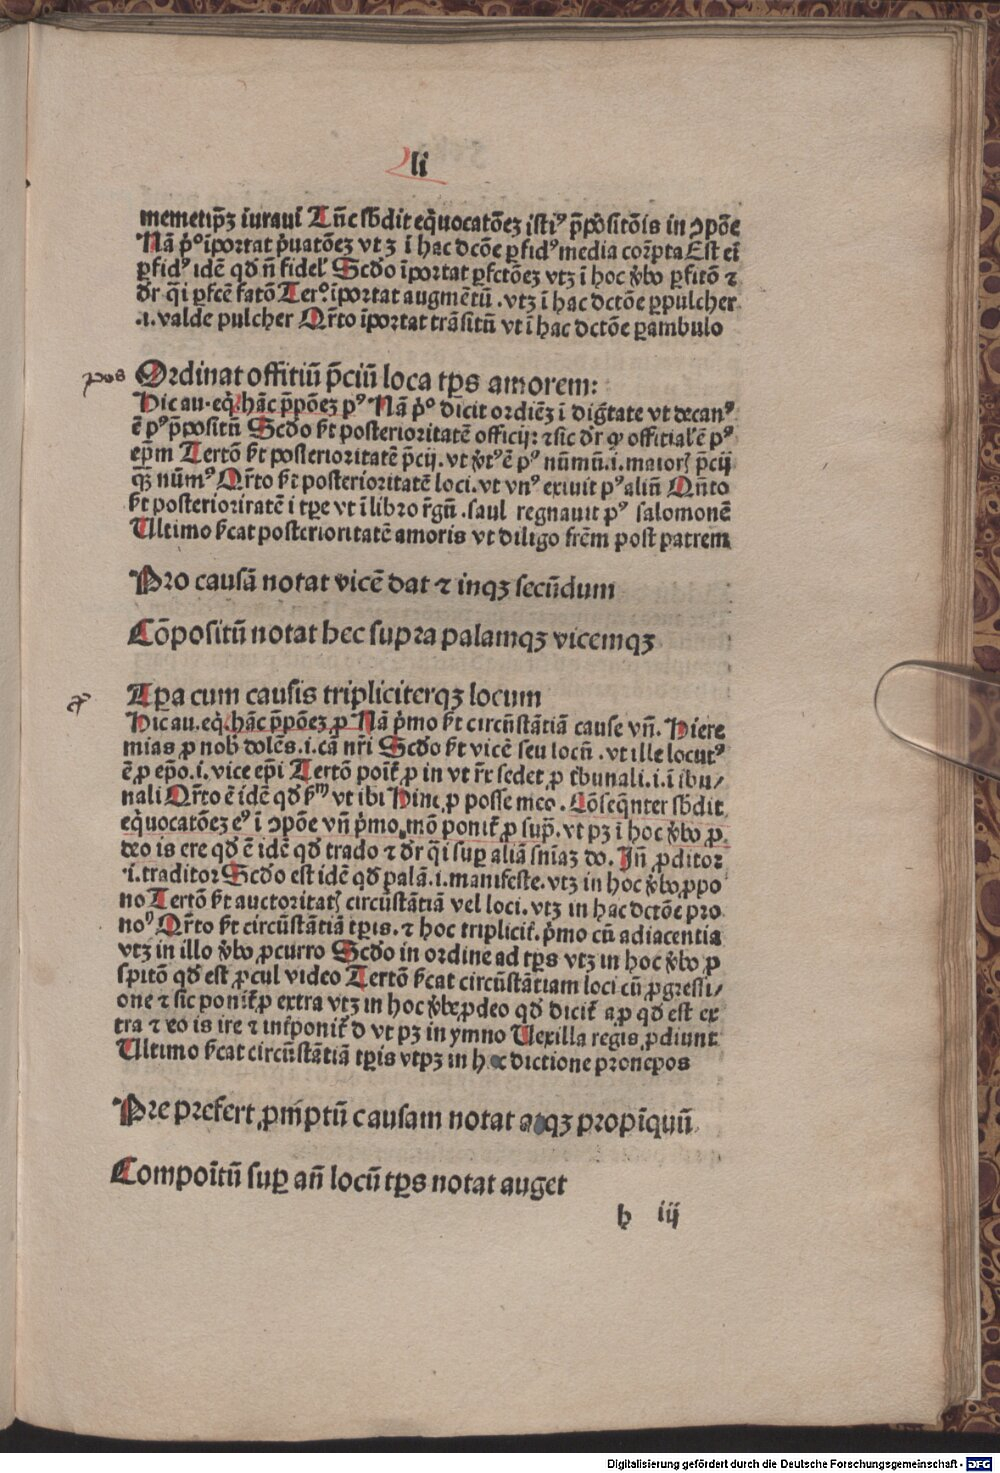 li
memetip̄ʒ iuraui Tūc sb̄dit eq̇uocatōeʒ istiꝰ p̄pōsitōis in ↄpōe
Nā ṗᵒ īportat ṗuatōeʒ vt ʒ ī hac dcōe ꝑfidꝰ media cor̄pta Est eī
ꝑfidꝰ idē qd̄ n̄ fidelꝭ Scd̄o īportat ꝑfctōeʒ vtʒ ī hoc v̇bo ꝑfitō ⁊
dr̄ q̄i ꝑfcē fatō Terᵒ īportat augmētū . vtʒ ī hac dctōe ꝑpulcher
.i. valde pulcher Qr̄to īportat trāsitū vt ī hac dctōe ꝑambulo
pos Ordinat offitiū p̄ciū loca tp̄s amorem:
Hic au. eq̇. hāc p̄pōeʒ pꝰ Nā ṗᵒ dicit ordiēʒ ī diḡtate vt decanꝰ
ē pꝰ p̄positū Scd̄o ſt̄ posterioritatē officij: ⁊ sic dr̄ ꝙ offitialꝭ ē pꝰ
ep̄m Tertō ſt̄ posterioritatē p̄cij . vt v̇tꝰ ē pꝰ nūmū .i. maiorꝭ p̄cij
qʒ̄ nūmꝰ Qr̄to ſt̄ posterioritatē loci . vt vnꝰ exiuit pꝰ aliū Qn̄to
ſt̄ posterioriratē i tꝑe vt ī libro r̄gū . saul regnauit pꝰ salomonē
Ultimo ſcat posterioritatē amoris vt diligo frēm post patrem
Pro causā notat vicē dat ⁊ inqʒ secūdum
Cōpositū notat hec supra palamqʒ vicemqʒ
ꝓ Apra cum causis tripliciterqʒ locum
Hic au. eq̇. hāc p̄pōeʒ ꝓ Nā ṗmo ſt̄ circūstātiā cause vn̄. Hiere
mias ꝓ nob̄ dolēs .i. cā nr̄i Scd̄o ſt̄ vicē seu locū . vt ille locutꝰ
ē ꝓ ep̄o .i. vice ep̄i Tertō poit̄ ꝓ in vt r̄x sedet ꝓ tb̄unali .i. ī ibu/
nali Qr̄to ē idē qd̄ ẜm vt ibi Hinc ꝓ posse meo . Cōseq̄nter sb̄dit
eq̇uocatōeʒ eꝰ ī ↄpōe vn̄ ṗmo mō ponit̄ ꝓ sup̄. vt pʒ ī hoc v̇bo ꝓ
deo is ere qd̄ ē idē qd̄ trado ⁊ dr̄ q̄i suꝑ aliā sn̄iaʒ do. In̄ ꝓditor
.i. traditor Scd̄o est idē qd̄ palā .i. manifeste . vtʒ in hoc v̇bo ꝓpo
no Tertō ſt̄ auctoritatꝭ circūstātiā vel loci . vtʒ in hac dctōe pro
noꝰ Qr̄to ſt̄ circūstātiā tꝑis . ⁊ hoc triplicit̄. ṗmo cū adiacentia
vtʒ in illo v̇bo ꝓcurro Scd̄o in ordine ad tp̄s vtʒ in hoc v̇bo ꝓ
spitō qd̄ est ꝓcul video Tertō ſcat circūstātiam loci cū ꝓgressi/
one ⁊ sic ponit̄ ꝓ extra vtʒ in hoc v̇bo ꝓdeo qd̄ dicit̄ a ꝓ qd̄ est ex
tra ⁊ eo is ire ⁊ int̄ponit̄ d vt pʒ in ymno Uexilla regis ꝓdiunt
Ultimo ſcat circūstātiā tꝑis vtpʒ in hoc dictione pronepos
Pre prefert ꝓm̄ptū causam notat atqʒ propīquū
Compoītū suꝑ an̄ locū tp̄s notat auget
h iij
Digitalisierung gefördert durch die Deutsche Forschungsgemeinschaft - DFG